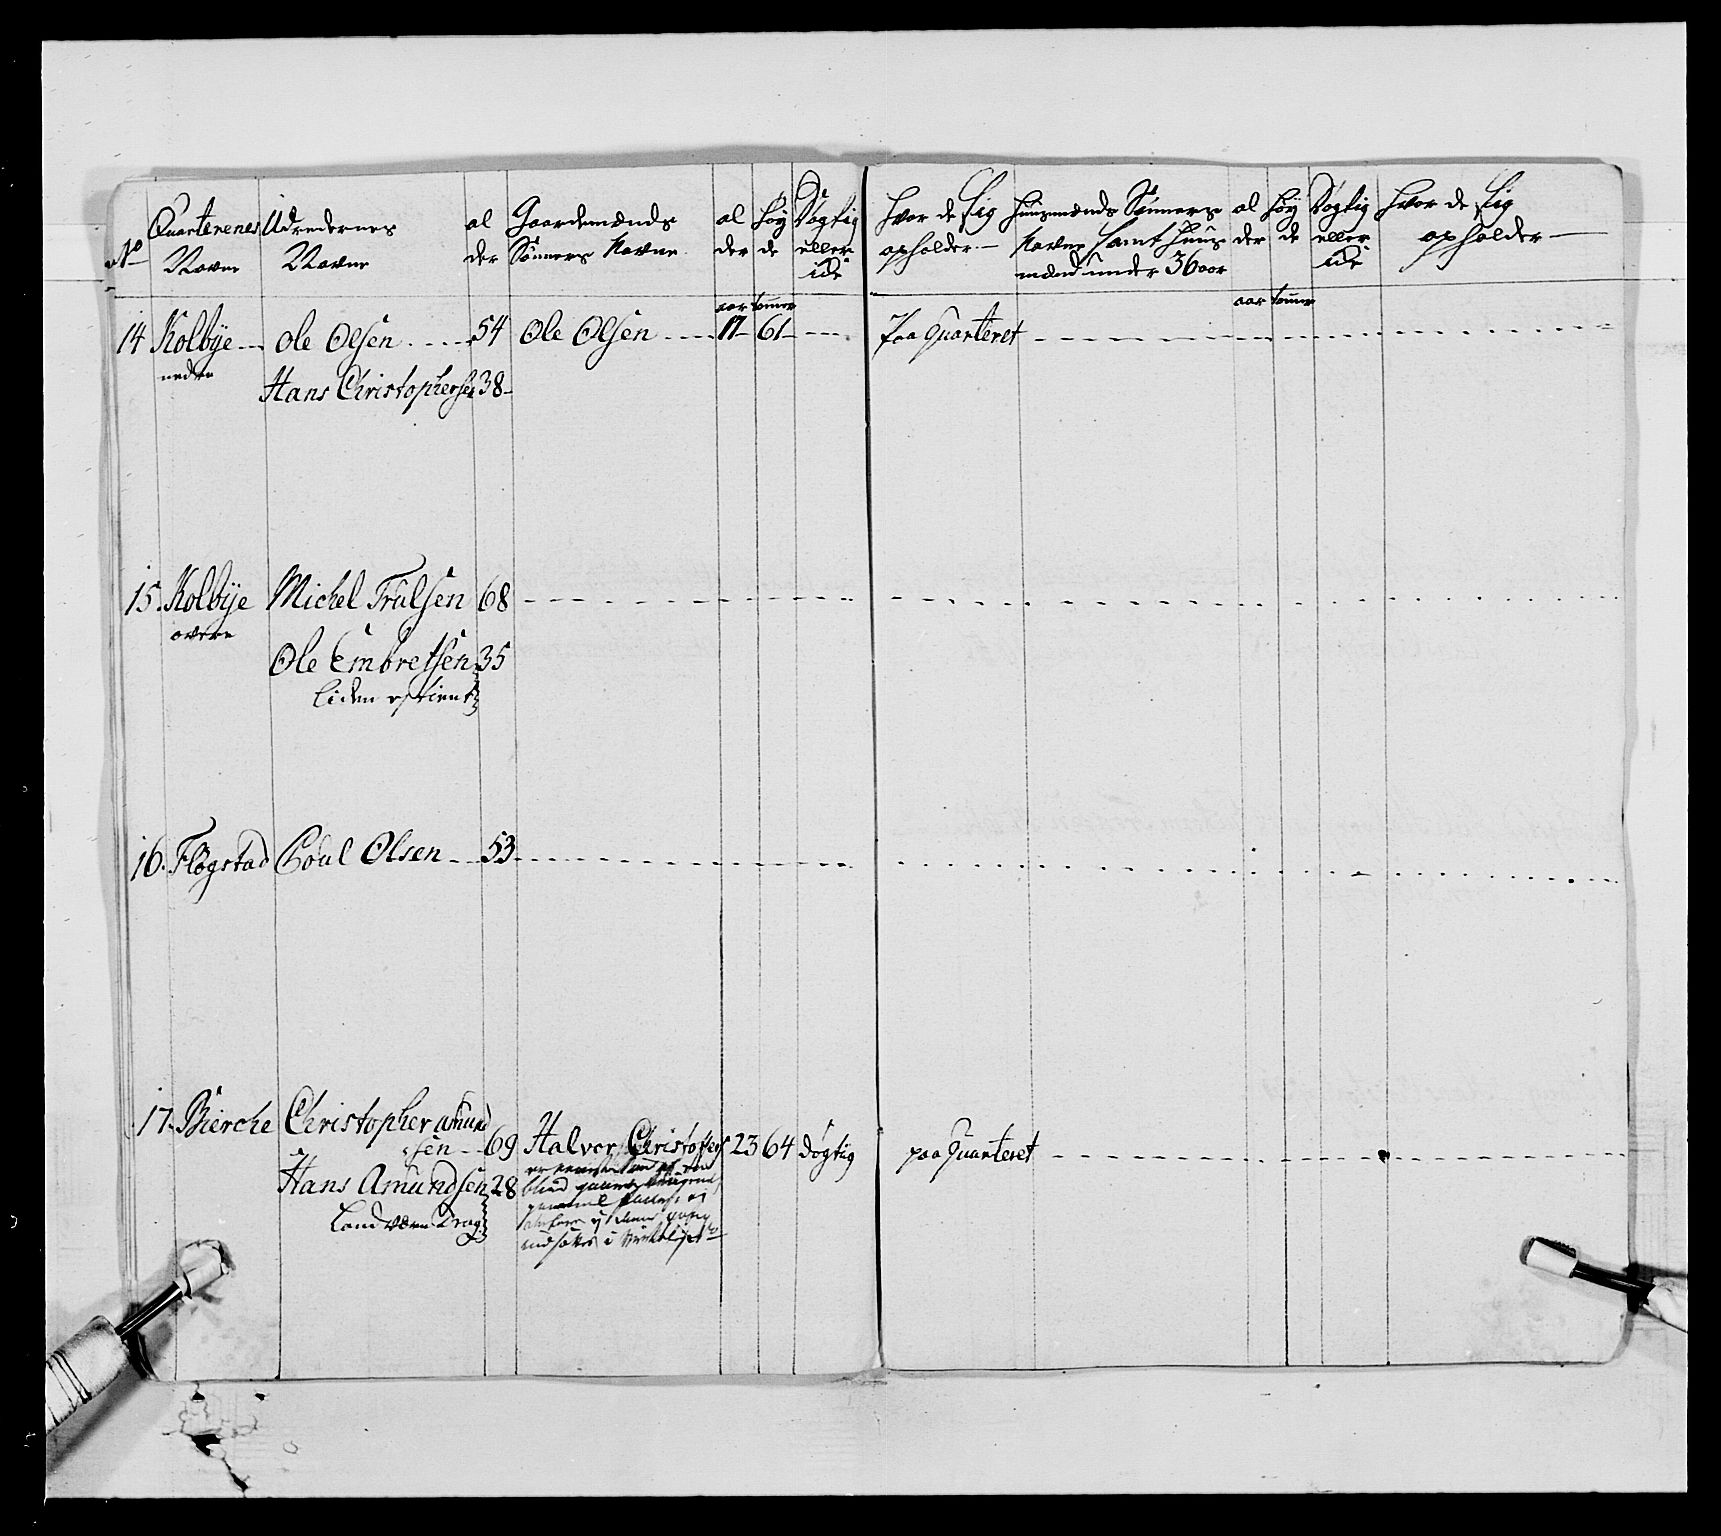 No Quarterenes Navne Udredernes Navne al der Gaardemænds Sønners Navne al der høy de Døgtig eller ide hvor de sig opholder huusmænds Sønners Navne samt huus mænd under 36 aar al der høy de Døgtig eller ide hvor de sig opholder
aar tommer aar tommer
14 Kolbÿe Ole Olsen 54 Ole Olsen 17 61 Paa Quarteret
nedre
Hans Christophersen 38
15. Kolbÿe Michel Trulsen 68
overe
Ole Embretsen 35
16. Fløgstad Poul Olsen 53
17. Bierche Christopher Amund
sen 69 Halvor Christoffers 23 64 døgtig paa Quarteret
Hans Amundsen 28
Landværn Drag.